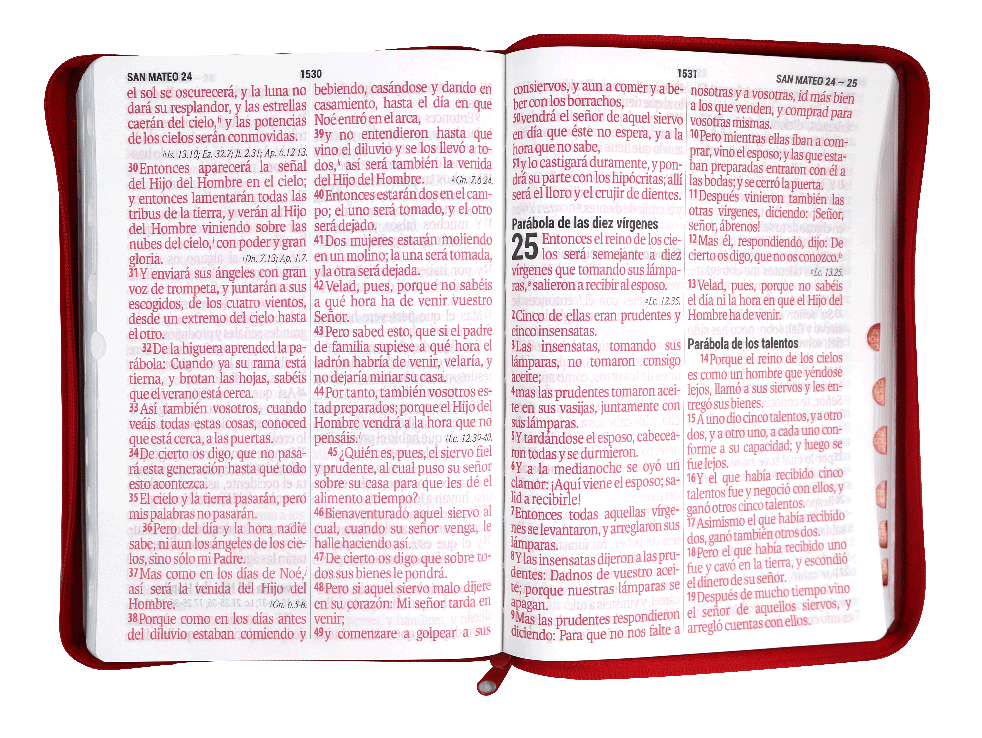 SAN MATEO 24
1530
el sol se oscurecerá, y la luna no
dará su resplandor, y las estrellas
caerán del cielo,ʰ y las potencias
de los cielos serán conmovidas.
ʰIs. 13.10; Ez. 32.7; Jl. 2.31; Ap. 6.12-13.
30Entonces aparecerá la señal
del Hijo del Hombre en el cielo;
y entonces lamentarán todas las
tribus de la tierra, y verán al Hijo
del Hombre viniendo sobre las
nubes del cielo,ⁱ con poder y gran
gloria. ⁱDn. 7.13; Ap. 1.7.
31Y enviará sus ángeles con gran
voz de trompeta, y juntarán a sus
escogidos, de los cuatro vientos,
desde un extremo del cielo hasta
el otro.
32De la higuera aprended la pa-
rábola: Cuando ya su rama está
tierna, y brotan las hojas, sabéis
que el verano está cerca.
33Así también vosotros, cuando
veáis todas estas cosas, conoced
que está cerca, a las puertas.
34De cierto os digo, que no pasa-
rá esta generación hasta que todo
esto acontezca.
35El cielo y la tierra pasarán, pero
mis palabras no pasarán.
36Pero del día y la hora nadie
sabe, ni aun los ángeles de los cie-
los, sino sólo mi Padre.
37Mas como en los días de Noé,ʲ
así será la venida del Hijo del
Hombre. ʲGn. 6.5-8.
38Porque como en los días antes
del diluvio estaban comiendo y
bebiendo, casándose y dando en
casamiento, hasta el día en que
Noé entró en el arca,
39y no entendieron hasta que
vino el diluvio y se los llevó a to-
dos,ᵏ así será también la venida
del Hijo del Hombre. ᵏGn. 7.6-24.
40Entonces estarán dos en el cam-
po; el uno será tomado, y el otro
será dejado.
41Dos mujeres estarán moliendo
en un molino; la una será tomada,
y la otra será dejada.
42Velad, pues, porque no sabéis
a qué hora ha de venir vuestro
Señor.
43Pero sabed esto, que si el padre
de familia supiese a qué hora el
ladrón habría de venir, velaría, y
no dejaría minar su casa.
44Por tanto, también vosotros es-
tad preparados; porque el Hijo del
Hombre vendrá a la hora que no
pensáis.ˡ ˡLc. 12.39-40.
45¿Quién es, pues, el siervo fiel
y prudente, al cual puso su señor
sobre su casa para que les dé el
alimento a tiempo?
46Bienaventurado aquel siervo al
cual, cuando su señor venga, le
halle haciendo así.
47De cierto os digo que sobre to-
dos sus bienes le pondrá.
48Pero si aquel siervo malo dijere
en su corazón: Mi señor tarda en
venir;
49y comenzare a golpear a sus
1531
SAN MATEO 24 – 25
consiervos, y aun a comer y a be-
ber con los borrachos,
50vendrá el señor de aquel siervo
en día que éste no espera, y a la
hora que no sabe,
51y lo castigará duramente, y pon-
drá su parte con los hipócritas; allí
será el lloro y el crujir de dientes.
Parábola de las diez vírgenes
25 Entonces el reino de los cie-
los será semejante a diez
vírgenes que tomando sus lámpa-
ras,ᵃ salieron a recibir al esposo.
ᵃLc. 12.35.
2Cinco de ellas eran prudentes y
cinco insensatas.
3Las insensatas, tomando sus
lámparas, no tomaron consigo
aceite;
4mas las prudentes tomaron acei-
te en sus vasijas, juntamente con
sus lámparas.
5Y tardándose el esposo, cabecea-
ron todas y se durmieron.
6Y a la medianoche se oyó un
clamor: ¡Aquí viene el esposo; sa-
lid a recibirle!
7Entonces todas aquellas vírge-
nes se levantaron, y arreglaron sus
lámparas.
8Y las insensatas dijeron a las pru-
dentes: Dadnos de vuestro acei-
te; porque nuestras lámparas se
apagan.
9Mas las prudentes respondieron
diciendo: Para que no nos falte a
nosotras y a vosotras, id más bien
a los que venden, y comprad para
vosotras mismas.
10Pero mientras ellas iban a com-
prar, vino el esposo; y las que esta-
ban preparadas entraron con él a
las bodas; y se cerró la puerta.
11Después vinieron también las
otras vírgenes, diciendo: ¡Señor,
señor, ábrenos!
12Mas él, respondiendo, dijo: De
cierto os digo, que no os conozco.ᵇ
ᵇLc. 13.25.
13Velad, pues, porque no sabéis
el día ni la hora en que el Hijo del
Hombre ha de venir.
Parábola de los talentos
14Porque el reino de los cielos
es como un hombre que yéndose
lejos, llamó a sus siervos y les en-
tregó sus bienes.
15A uno dio cinco talentos, y a otro
dos, y a otro uno, a cada uno con-
forme a su capacidad; y luego se
fue lejos.
16Y el que había recibido cinco
talentos fue y negoció con ellos, y
ganó otros cinco talentos.
17Asimismo el que había recibido
dos, ganó también otros dos.
18Pero el que había recibido uno
fue y cavó en la tierra, y escondió
el dinero de su señor.
19Después de mucho tiempo vino
el señor de aquellos siervos, y
arregló cuentas con ellos.